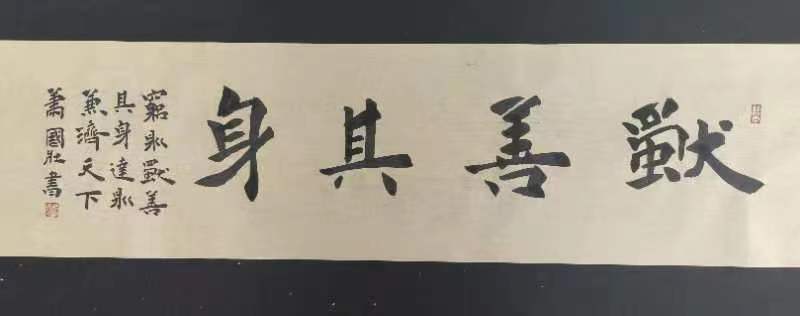 獨善其身
窮則獨善
其身達則
兼濟天下
蕭國壯書